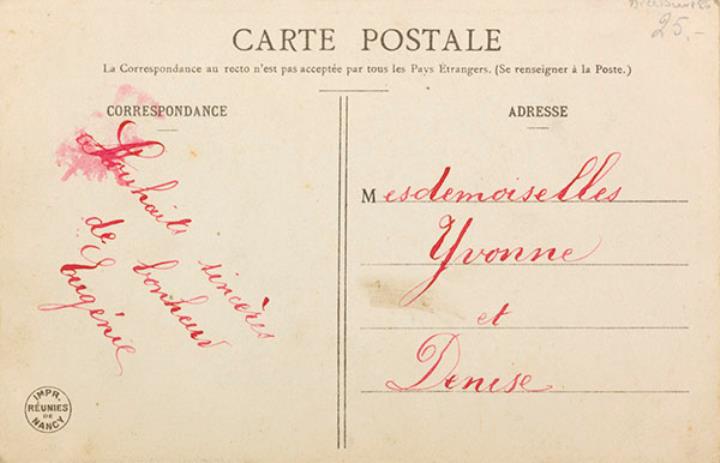 25,-
CARTE POSTALE
La Correspondance au recto n'est pas acceptée par tous les Pays Étrangers. (Se renseigner à la Poste.)
CORRESPONDANCE
Souhaits sincères
de bonheur
Eugénie
ADRESSE
Mesdemoiselles
Yvonne
et
Denise
IMPR.
RÉUNIES
DE
NANCY